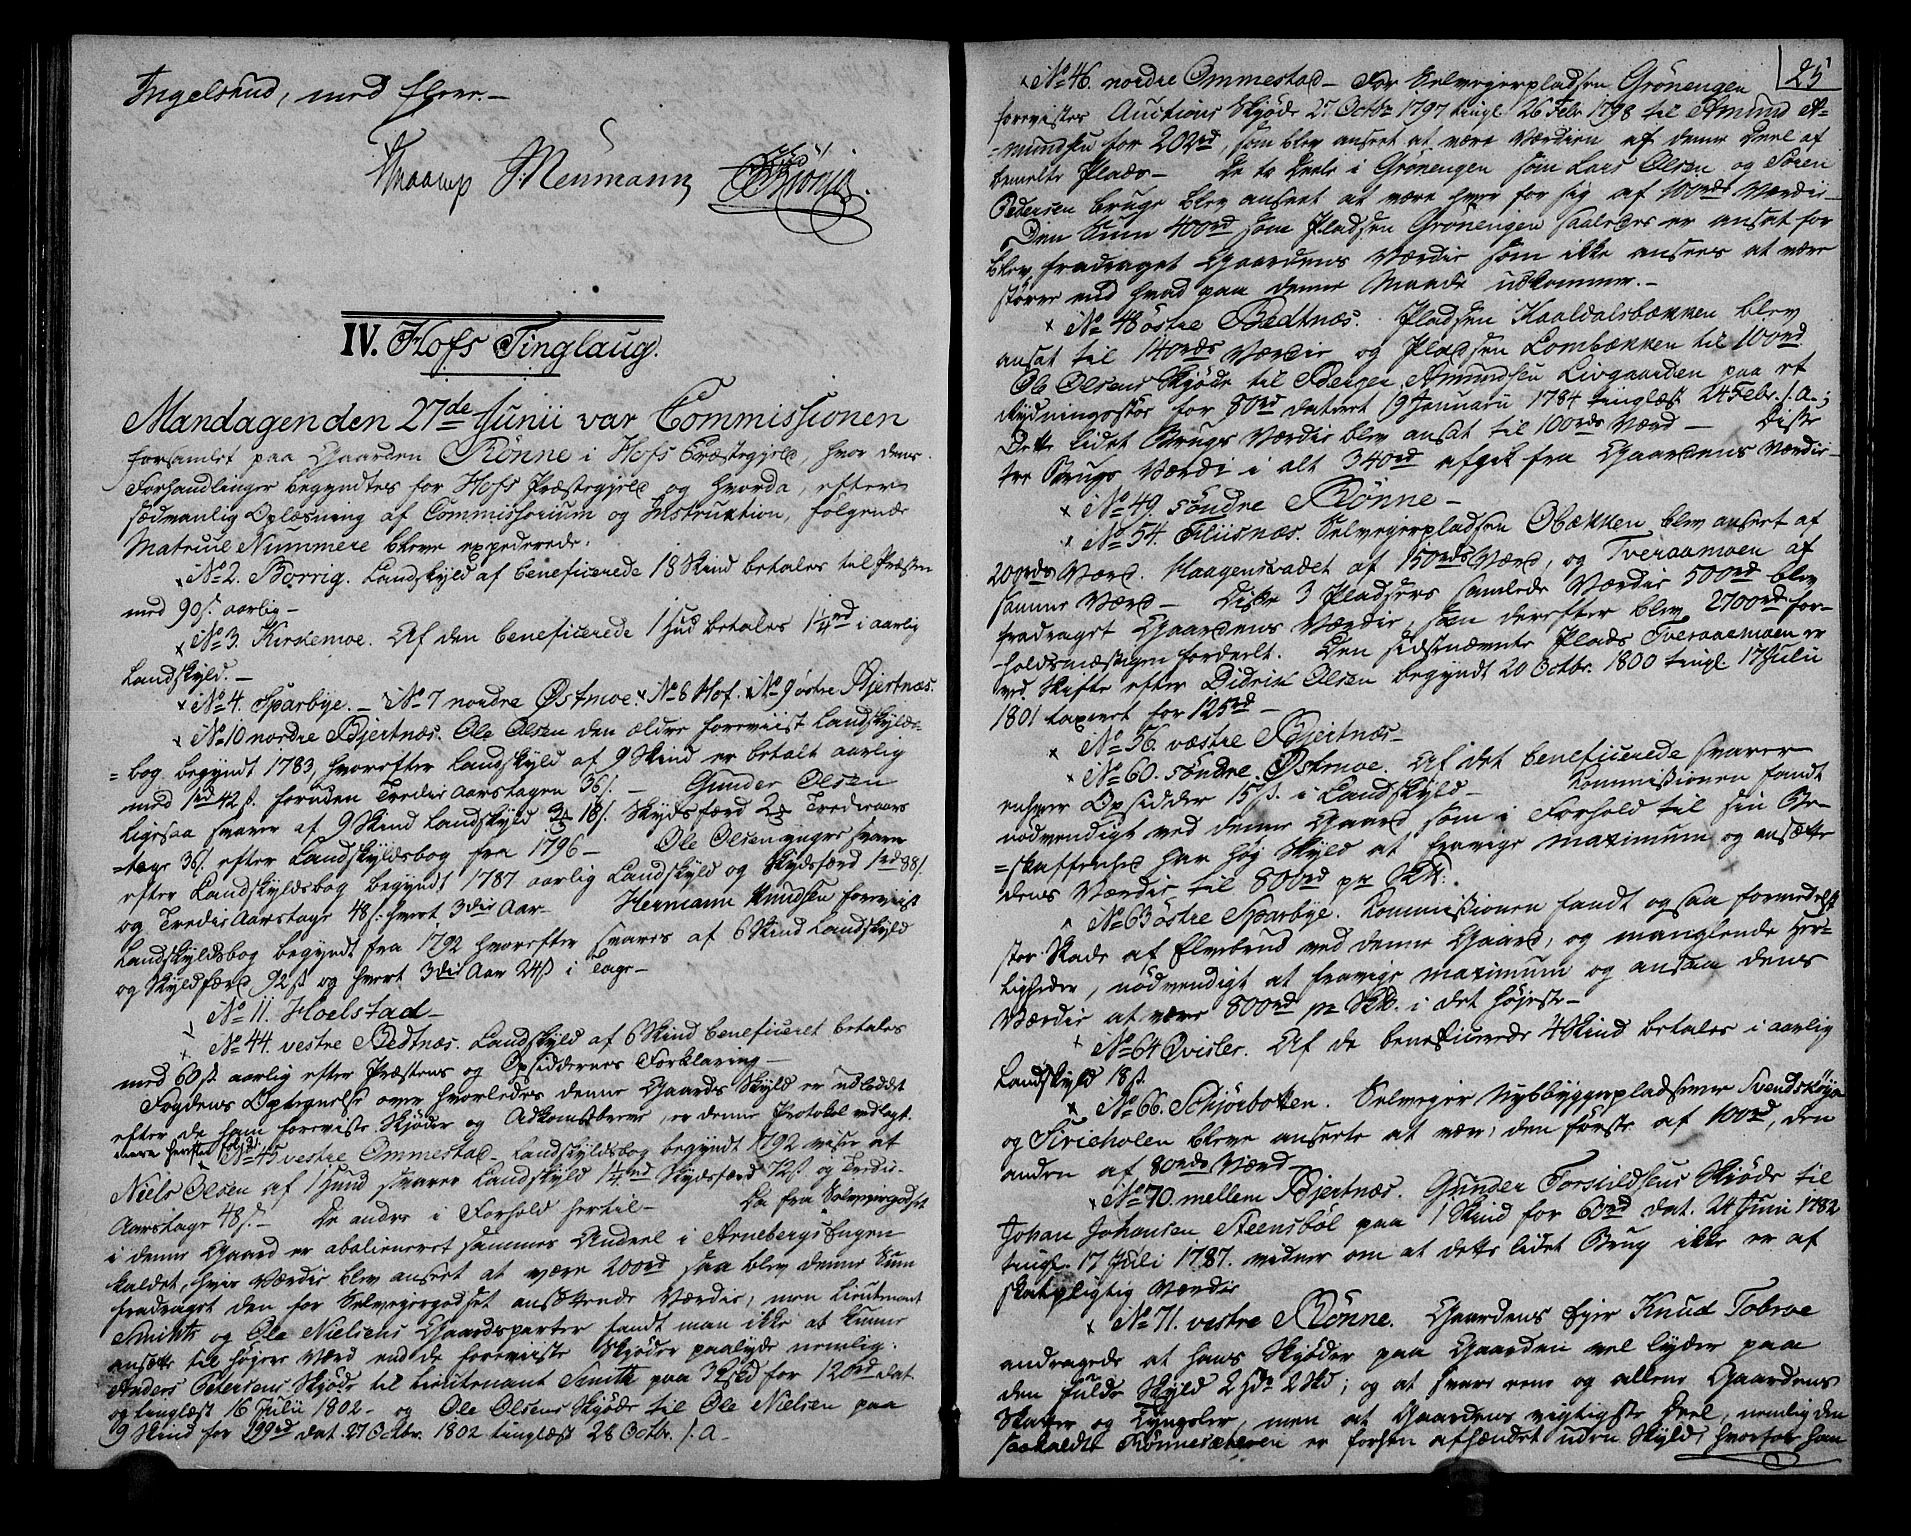 Ingelsrud, med flere.—
Knoorp Neumann Brönie
IV. Hofs Tinglaug.
Mandagen den 27de Junii var Commissionen
forsamlet paa Gaarden Rönne i Hofs Præstegjeld, hvor dens
Forhandlinger begyndtes for Hofs Præstegjeld og hvorda, efter
sædvanlig Oplæsning af Commissorium og Instruction, følgende
Matricul Nummere bleve expederede:
× No 2. Borrig. Landskyld af beneficerede 18 Skind betales til Præsten
med 90 s. aarlig—
× No 3. Kirkemoe. Af den beneficerede 1 Hud betales 1¼ rd i aarlig
Landskyld.—
× No 4. Sparbye. — × No 7 nordre Østmoe. × No 8 Hof. × No 9 østre Bjertnæs.
× No 10 nordre Bjertnæs. Ole Olsen den ældre foreviist Landskylds-
=bog begyndt 1783, hvorefter Landskyld af 9 Skind er betalt aarlig
med 1 rd 42 s. foruden Tredie Aarstagen 36 s. — Gunder Olsen
ligesaa svarer af 9 Skind Landskyld 18 s. Skydsfærd Tredieaars
=tage 36 s. efter Landskyldsbog fra 1796— Ole Olsen yngre svarer
efter Landskyldsbog begyndt 1787 aarlig Landskyld og Skydsfærd 1 rd 88 s.
og Tredie Aarstage 48 s. hvert 3die Aar— Hermann Knudsen foreviist
Landskyldsbog begyndt fra 1792 hvorefter svares af 6 Skind Landskyld
og Skydsfærd 92 s. og hvert 3die Aar 24 s. i Tage—
× No 11. Hoelstad—
× No 44. vestre Bedtnæs. Landskyld af 6 Skind beneficeret betales
med 60 s. aarlig efter Præstens og Opsiddernes Forklaring—
Fogdens Optegnelse over hvorledes denne Gaards Skyld er udloddet
efter de ham foreviste Skjøder og Adkomstbreve, er denne Protokol vedlagt.
× No 45 vestre Ommestad. Landskyldsbog begyndt 1792 viser at
Niels Olsen af 1 Hud svarer Landskyld 1¼ rd Skydsfærd 72 s. og Tredie-
Aarstage 48 s.— De andre i Forhold hertil— Da fra Selveiergodset
i denne Gaard er abalieneret sammes Andeel i Arnebergs Engen
kaldet, hvis Værdie blev anseet at være 200 rd saa blev denne Sum
fradraget den for Selveiergodset ansættende Værdie; men Lieutenant
Smiths og Ole Nielsens Gaardsparter fandt man ikke at kunne
ansætte til højere Værd end de foreviiste Skjøder paalyde nemlig:
Anders Petersens Skjøde til Lieutenant Smith paa 3 Skd for 120 rd dat.
og tinglæst 16 Julii 1802— og Ole Olsens Skjøde til Ole Nielsen paa
9 Skind for 199 rd dat. 27 Octbr. 1802 tinglæst 28 Octbr. s. A—
25
× No 46. nordre Ommestad — For Selveierpladsen Grönengen
forevistes Auctions Skjøde 27 Octbr 1797 tingl. 26 Febr 1798 til Amund A-
=mundsen for 202 rd, som blev anseet at være Værdien af denne Deel af
bemelte Plads— De to Deele i Grönengen som Lars Olsen og Søren
Pedersen bruge blev anseet at være hver for sig af 100 rds Værdie—
Den Sum 400 rd som Pladsen Grönengen saaledes er ansat for
blev fradraget Gaardens Værdie som ikke ansees at være
større end hvad paa denne Maade udkommer.—
× No 48 østre Bedtnæs. Pladsen Kaaldalsbækken blev
ansat til 140 rds Værdie og Pladsen Lombækken til 100 rd.
Ole Olsens Skjøde til Berger Amundsen Livgaarden paa et
Rydningsstør for 80 rd dateret 19 Januarii 1784 tinglæst 24 Febr. s. A.;
Dette lidet Brugs Værdie blev ansat til 100 rds Værd — Disse
tre Brugs Værdi i alt 340 rd afgik fra Gaardens Værdie—
× No 49. söndre Rönne—
× No 54. Fliisnæs. Selveierpladsen Obækken blev anseet af
200 rds Værd. Haagensvadet af 150 rds Værd, og Tveraamoen af
samme Værd— Disse 3 Pladsers samlede Værdie 500 rd blev
fradraget Gaardens Værdie, som derefter blev 2700 rd for-
=holdsmæssigen fordeelt. Den sidstnævnte Plads Tveraaemoen er
ved Skifte efter Didrik Olsen begyndt 20 Octbr. 1800 tingl. 17 Julii
1801 taxeret for 125 rd—
× No 56. væstre Bjertnæs—
× No 60. söndre Østmoe. Af det beneficerede svarer
enhver Opsidder 15 s. i Landskyld— Kommissionen fandt
nødvendigt ved denne Gaard som i Forhold til sin Be-
=skaffenhed har høj Skyld at fravige maximum og ansætte
dens Værdie til 800 rd pr Skd.
× No 63 østre Sparbye. Kommissionen fandt ogsaa formedelst
stor Skade af Elvebrud ved denne Gaard, og manglende Her-
ligheder, nødvendigt at fravige maximum og ansaa dens
Værdie at være 800 rd pr Skd. i det højeste—
× No 64 Qvisler. Af de beneficerede 4 Skind betales i aarlig
Landskyld 18 s.
× No 66. Schjörbotten. Selveier Nybyggerpladserne Svendshöya
og Siricholen bleve anseete at være: den første af 100 rd, den
anden af 80 rds Værd—
× No 70. mellem Bjertnæs. Gunder Torskildsens Skjøde til
Johan Johansen Steensböl paa 1 Skind for 60 rd dat. 24 Juni 1782
tingl. 17 Juli 1787. vidner om at dette lidet Brug ikke er af
skatpligtig Værdie
× No 71. vestre Rönne. Gaardens Ejer Knud Tobroe
andragede at hans Skjøder paa Gaarden vel lyder paa
den fulde Skyld 2 Hdr 2 Skd; og at svare ene og allene Gaardens
Skatter og Tyngsler, men at Gaardens vigtigste Deel, nemlig den
saakaldte Rönnesæteren er forhen afhændet uden Skyld, hvorfor han